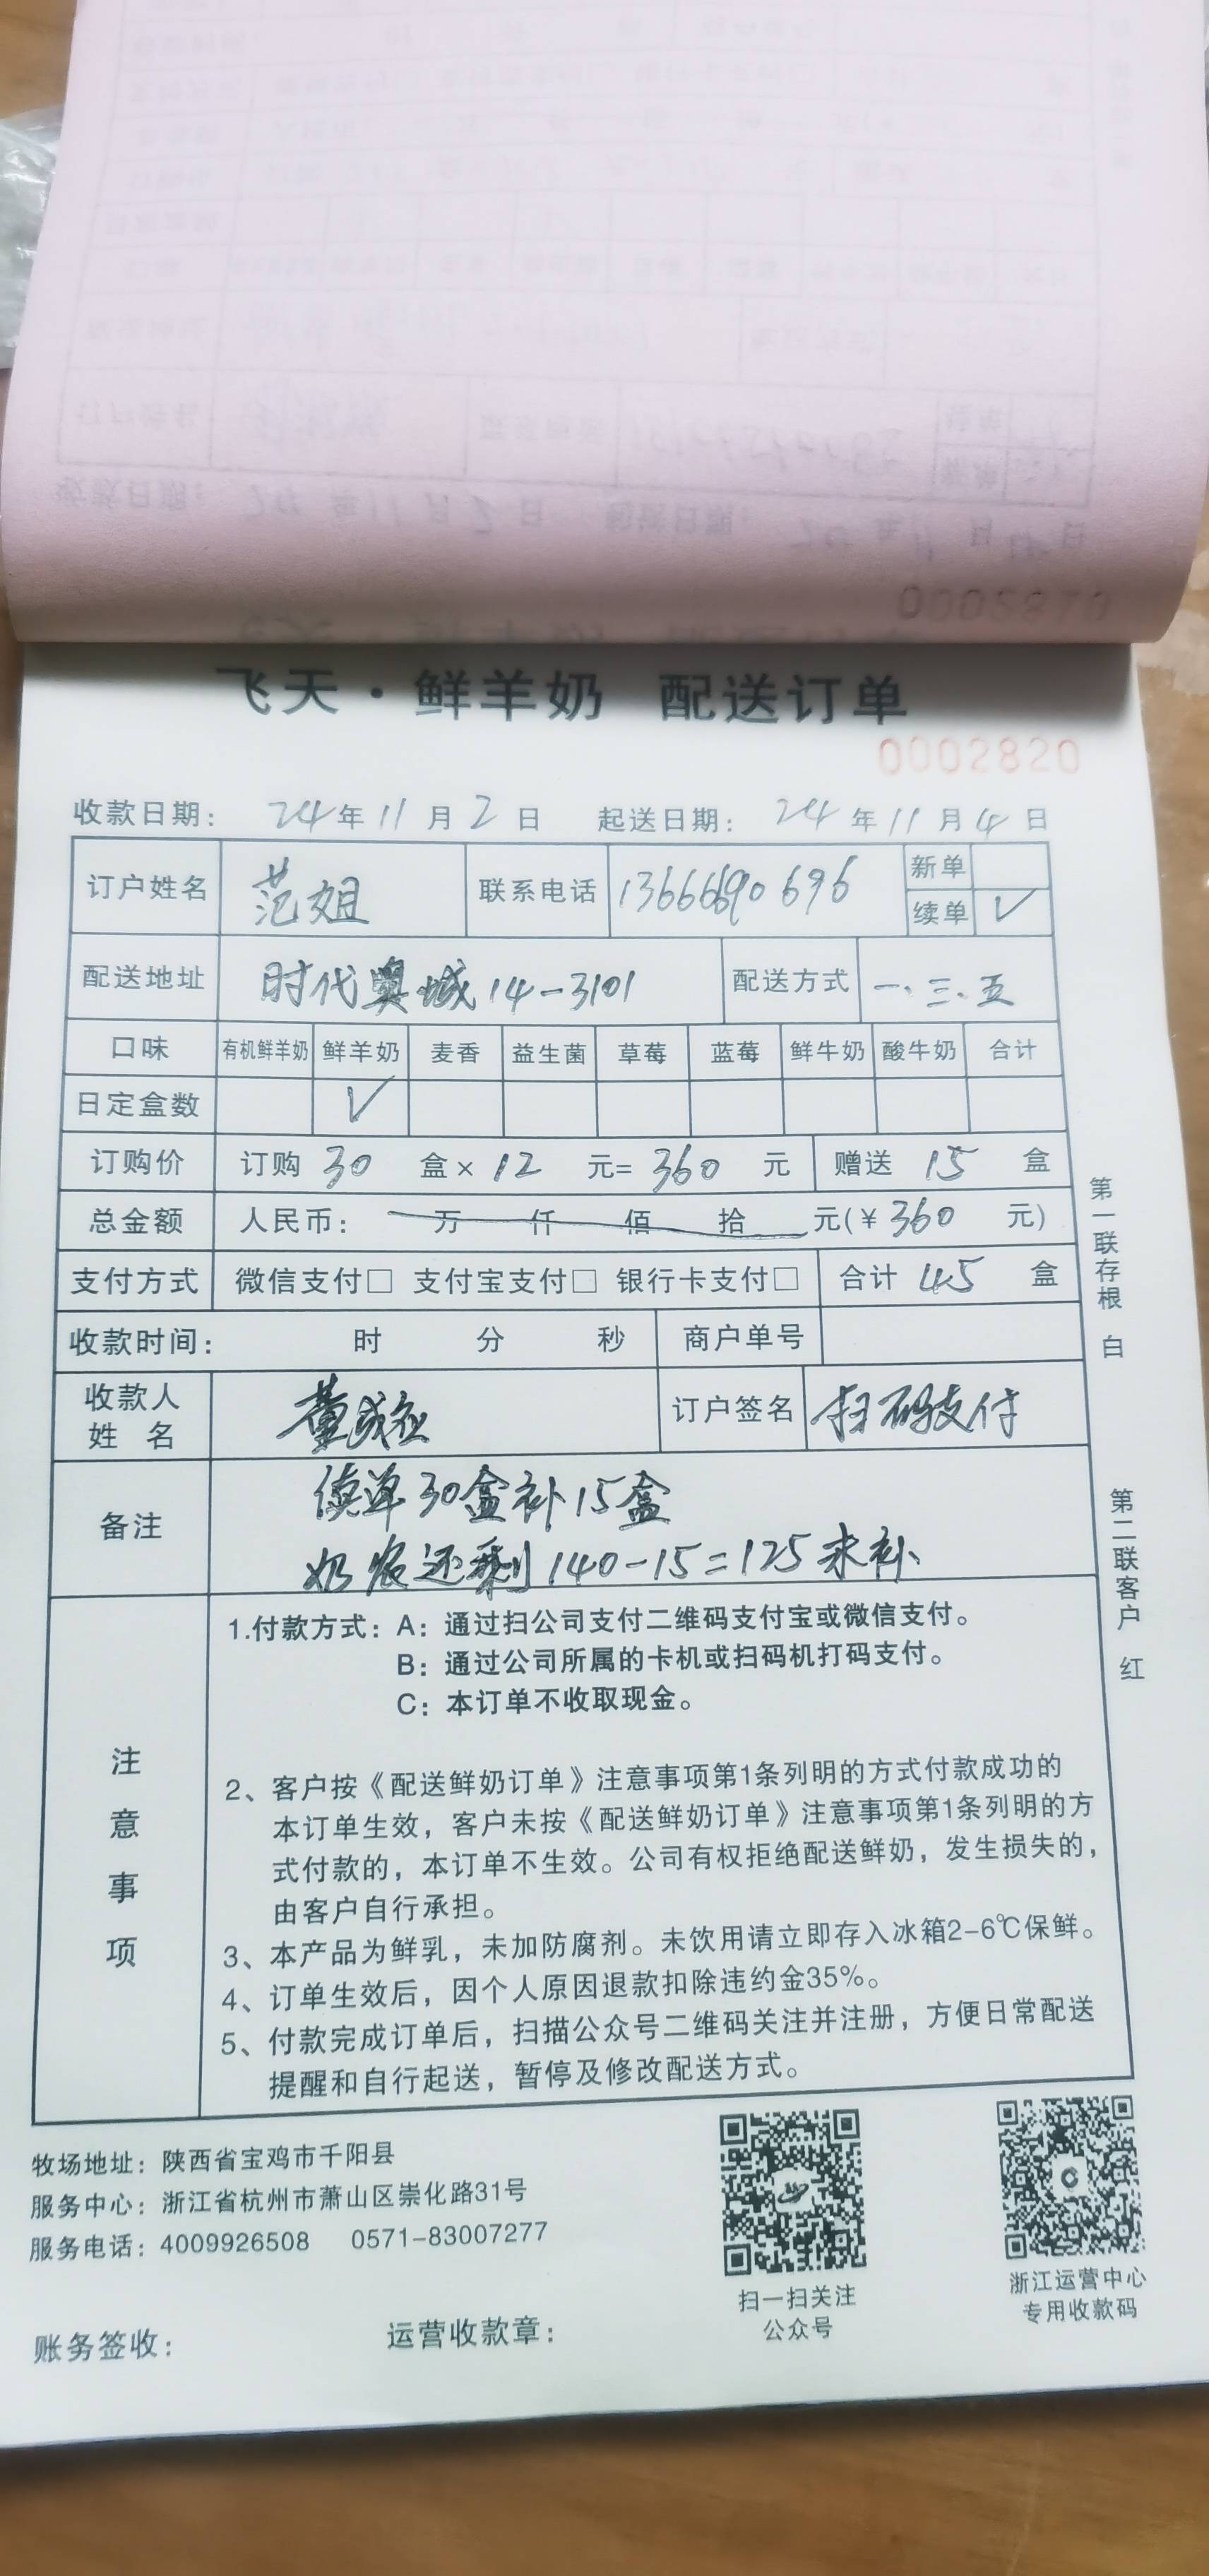 飞天·鲜羊奶 配送订单
0002820
收款日期： 24年11月2日 起送日期： 24年11月4日
订户姓名 范姐 联系电话 13666690696 新单
续单 √
配送地址 时代奥城14-3101 配送方式 一、三、五
口味 有机鲜羊奶 鲜羊奶 麦香 益生菌 草莓 蓝莓 鲜牛奶 酸牛奶 合计
日定盒数 √
订购价 订购 30 盒× 12 元= 360 元 赠送 15 盒
总金额 人民币： 万 仟 佰 拾 元(￥360 元)
支付方式 微信支付□ 支付宝支付□ 银行卡支付□ 合计 45 盒
收款时间： 时 分 秒 商户单号
收款人
姓 名 订户签名 扫码支付
备注 续单30盒补15盒
奶农还剩140-15=125未补
注意事项
1.付款方式：A：通过扫公司支付二维码支付宝或微信支付。
B：通过公司所属的卡机或扫码机打码支付。
C：本订单不收取现金。
2、客户按《配送鲜奶订单》注意事项第1条列明的方式付款成功的
本订单生效，客户未按《配送鲜奶订单》注意事项第1条列明的方
式付款的，本订单不生效。公司有权拒绝配送鲜奶，发生损失的，
由客户自行承担。
3、本产品为鲜乳，未加防腐剂。未饮用请立即存入冰箱2-6℃保鲜。
4、订单生效后，因个人原因退款扣除违约金35%。
5、付款完成订单后，扫描公众号二维码关注并注册，方便日常配送
提醒和自行起送，暂停及修改配送方式。
第一联存根 白
第二联客户 红
牧场地址：陕西省宝鸡市千阳县
服务中心：浙江省杭州市萧山区崇化路31号
服务电话：4009926508 0571-83007277
扫一扫关注
公众号
浙江运营中心
专用收款码
账务签收： 运营收款章：